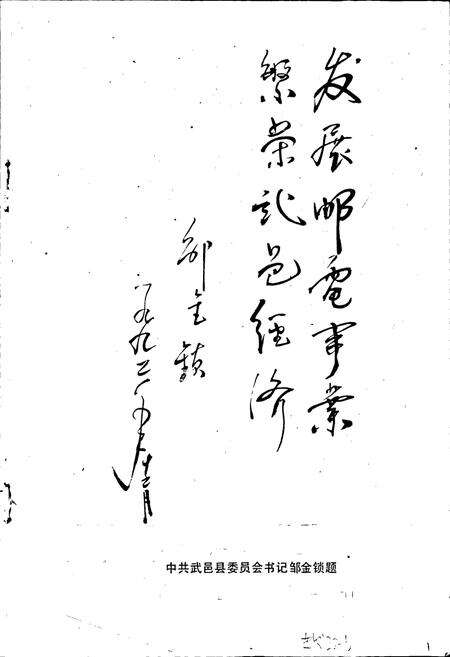 发展邮電事業
繁荣武邑經济
邹金锁
一九九二年
十二月
中共武邑县委员会书记邹金锁题